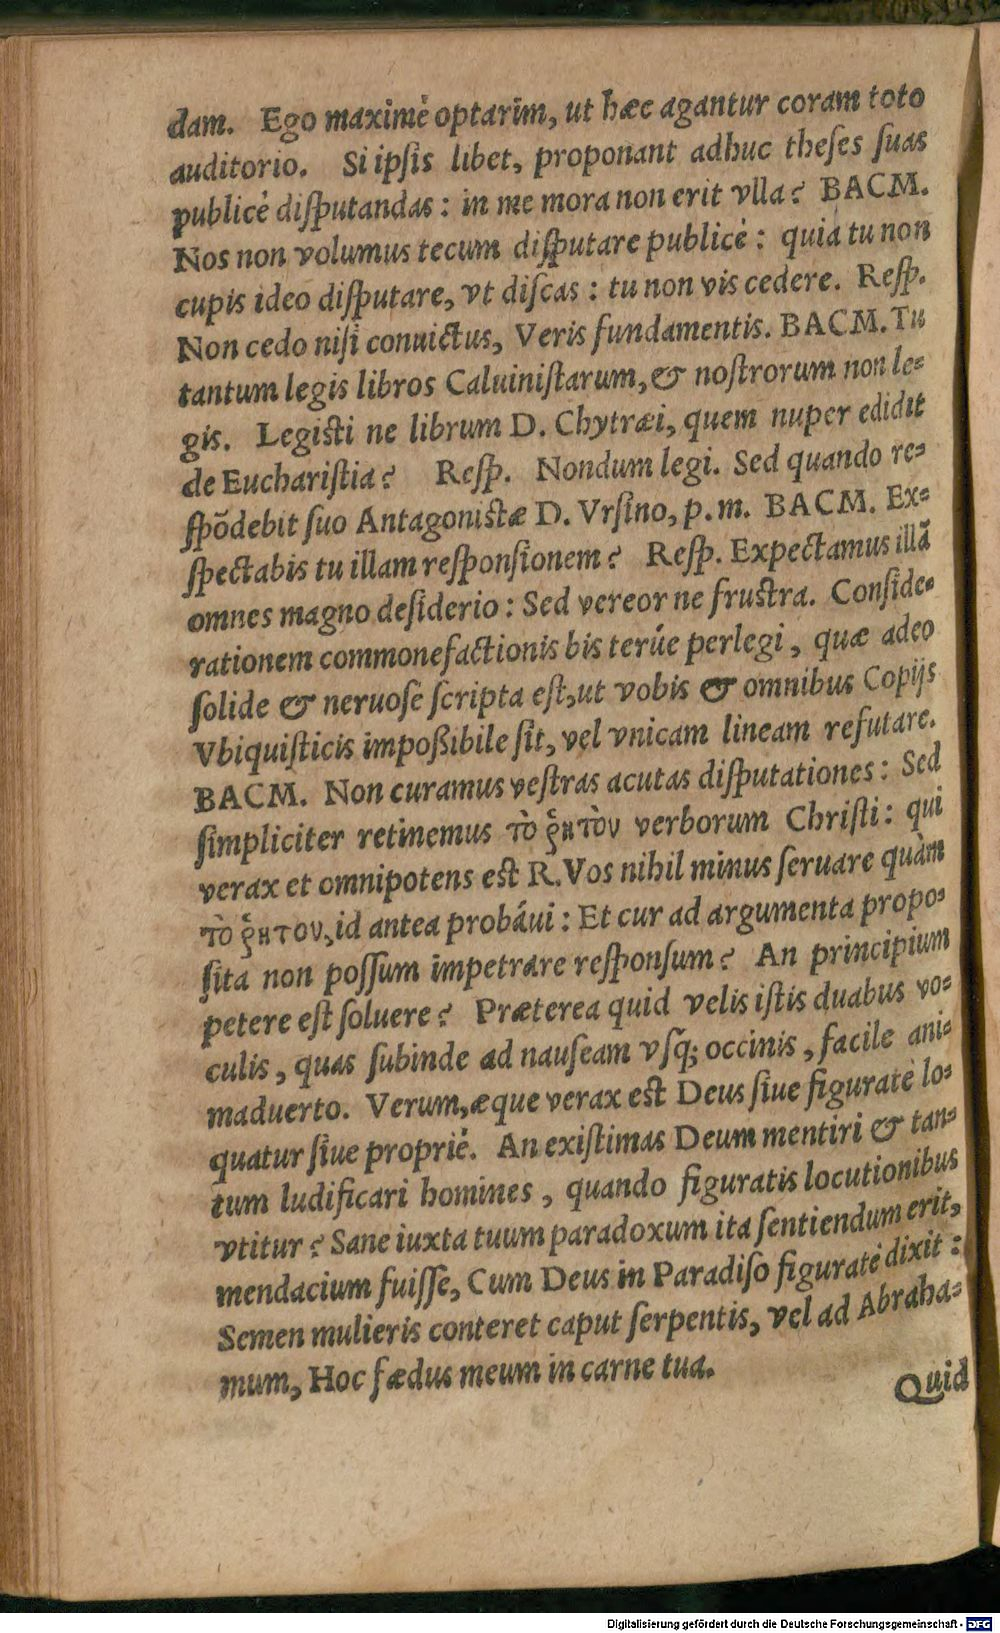 dam. Ego maximè optarim, ut hæc agantur coram toto
auditorio. Si ipſis libet, proponant adhuc theſes ſuas
publicè diſputandas: in me mora non erit vlla? BACM.
Nos non volumus tecum diſputare publicè: quia tu non
cupis ideo diſputare, vt diſcas: tu non vis cedere. Reſp.
Non cedo niſi conuictus, Veris fundamentis. BACM. Tu
tantum legis libros Caluiniſtarum, & noſtrorum non le-
gis. Legiſti ne librum D. Chytræi, quem nuper edidit
de Euchariſtia? Reſp. Nondum legi. Sed quando re-
ſpōdebit ſuo Antagoniſtæ D. Vrſino, p.m. BACM. Ex-
ſpectabis tu illam reſponſionem? Reſp. Expectamus illā
omnes magno deſiderio: Sed vereor ne fruſtra. Conſide-
rationem commonefactionis bis terúe perlegi, quæ adeo
ſolide & neruoſe ſcripta eſt, ut vobis & omnibus Copijs
Vbiquiſticis impoßibile ſit, vel vnicam lineam refutare.
BACM. Non curamus veſtras acutas diſputationes: Sed
ſimpliciter retinemus τὸ ῥητὸν verborum Chriſti: qui
verax et omnipotens eſt R. Vos nihil minus ſeruare quàm
τὸ ῥητον, id antea probáui: Et cur ad argumenta propo-
ſita non poſſum impetrare reſponſum? An principium
petere eſt ſoluere? Præterea quid velis iſtis duabus vo-
culis, quas ſubinde ad nauſeam vſq; occinis, facile ani-
maduerto. Verum, æque verax eſt Deus ſiue figuratè lo-
quatur ſiue propriè. An exiſtimas Deum mentiri & tan-
tum ludificari homines, quando figuratis locutionibus
vtitur? Sane iuxta tuum paradoxum ita ſentiendum erit,
mendacium fuiſſe, Cum Deus in Paradiſo figuratè dixit:
Semen mulieris conteret caput ſerpentis, vel ad Abraha-
mum, Hoc fædus meum in carne tua.
Quid
Digitalisierung gefördert durch die Deutsche Forschungsgemeinschaft - DFG